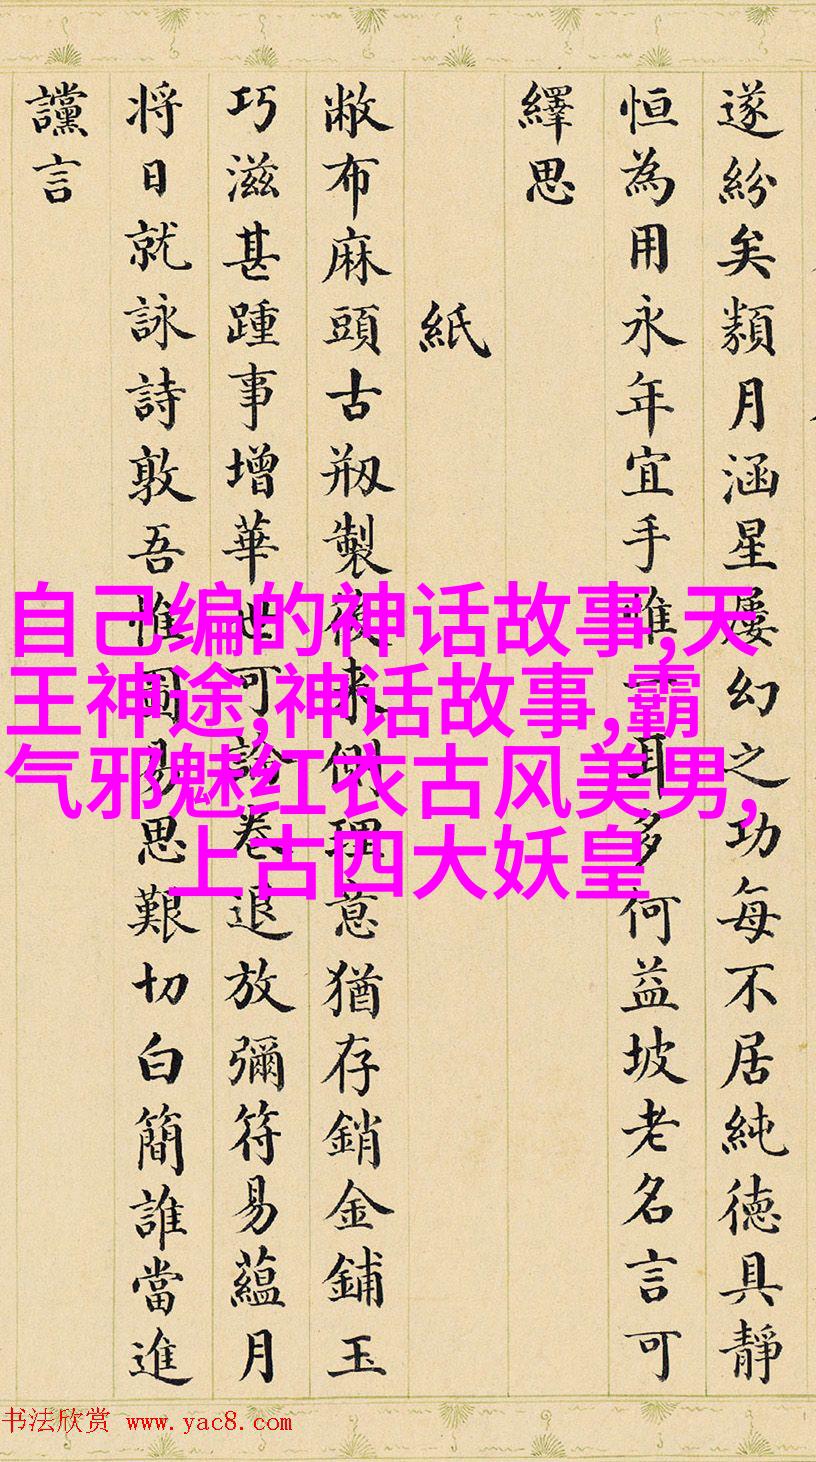 遂紛矣纇月涵星屢幻之功每不居純德具靜
恒為用永年宜手惟耳多何益坡老名言可
繹思
紙
敝布麻頭古剏製後来側理意猶存銷金鋪玉
巧滋甚踵事增華世可論卷退放彌符易蘊月
将日就詠詩敦吾惟圖易思艱切白簡誰當進
讜言
自己编的神话故事,天
王神途,神话故事,霸
气邪魅红衣古风美男,
上古四大妖皇
书法欣赏 www.yac8.com